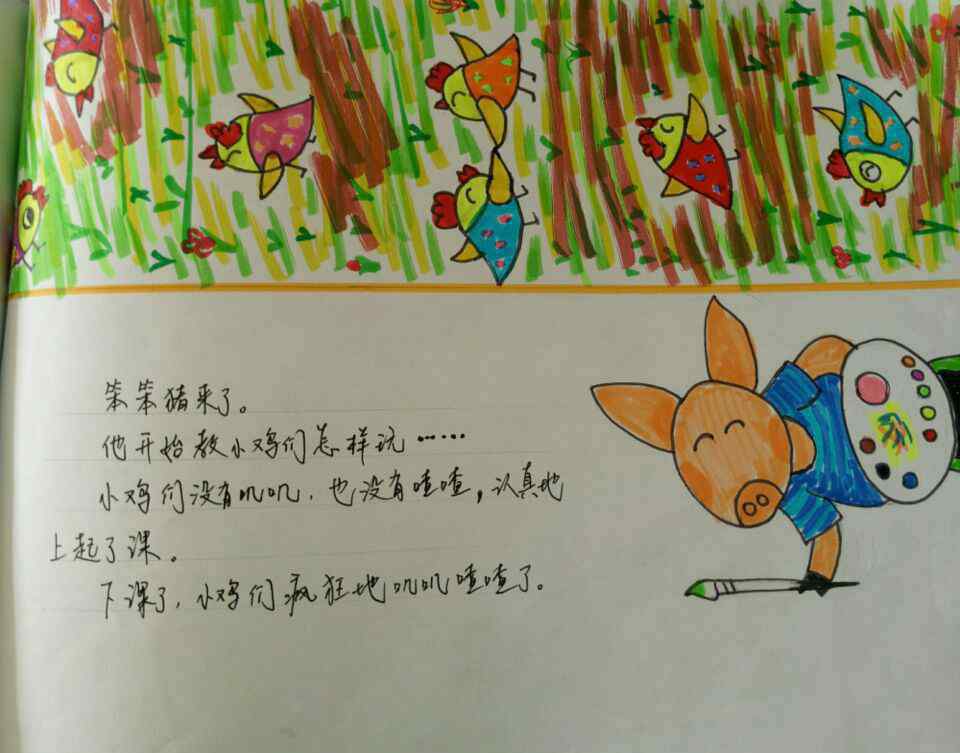 笨笨猪来了。
他开始教小鸡们怎样玩……
小鸡们没有叽叽，也没有喳喳，认真地
上起了课。
下课了，小鸡们疯狂地叽叽喳喳了。